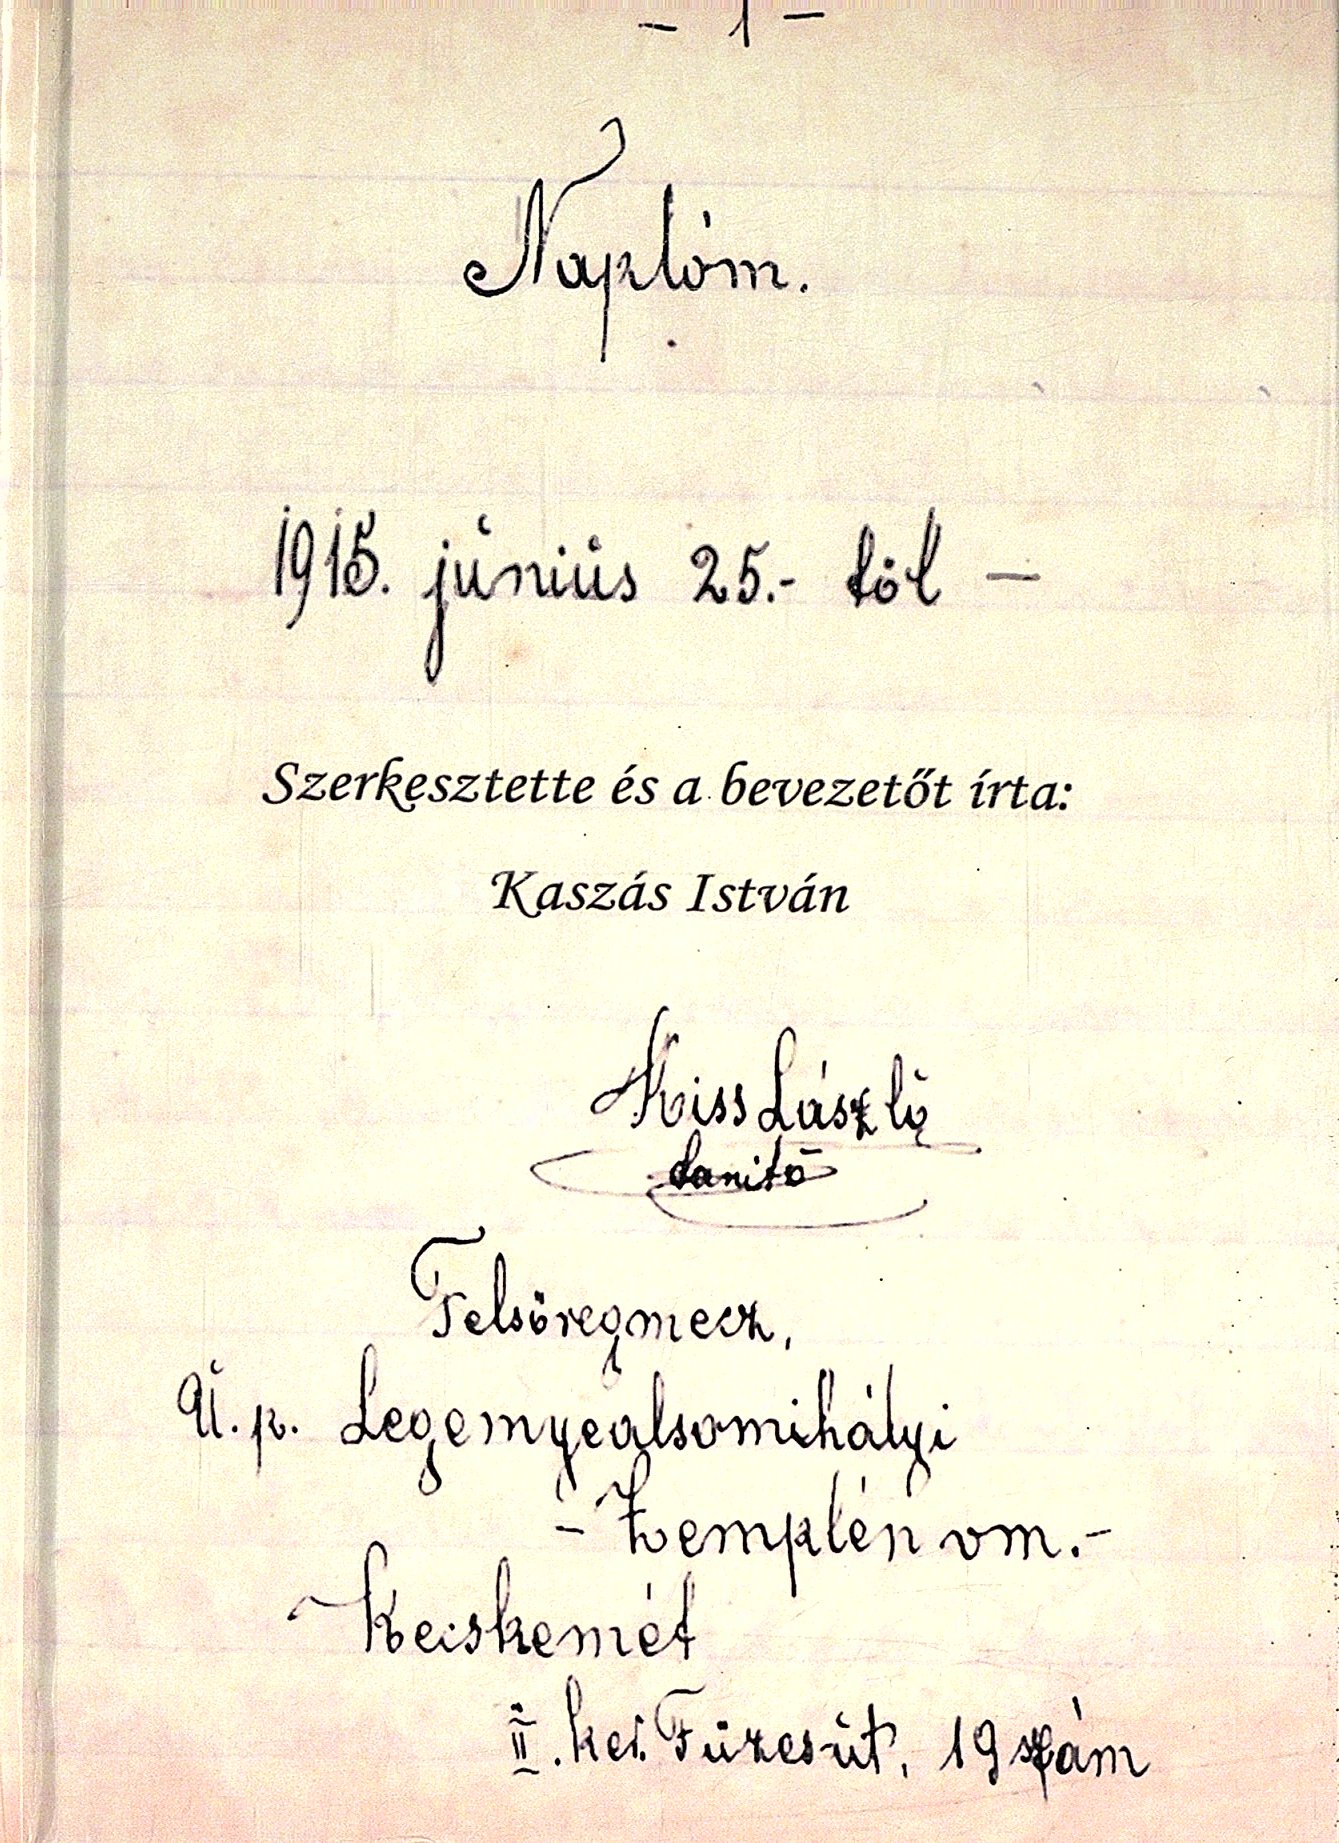 - 1 -
Naplóm.
1915. június 25.- től -
Szerkesztette és a bevezetőt írta:
Kaszás István
Kiss László
tanitó
Felsőregmecz,
U. p. Legenyealsomihályi
- Zemplén vm. -
Kecskemét
II. ker. Füzesút, 19 szám